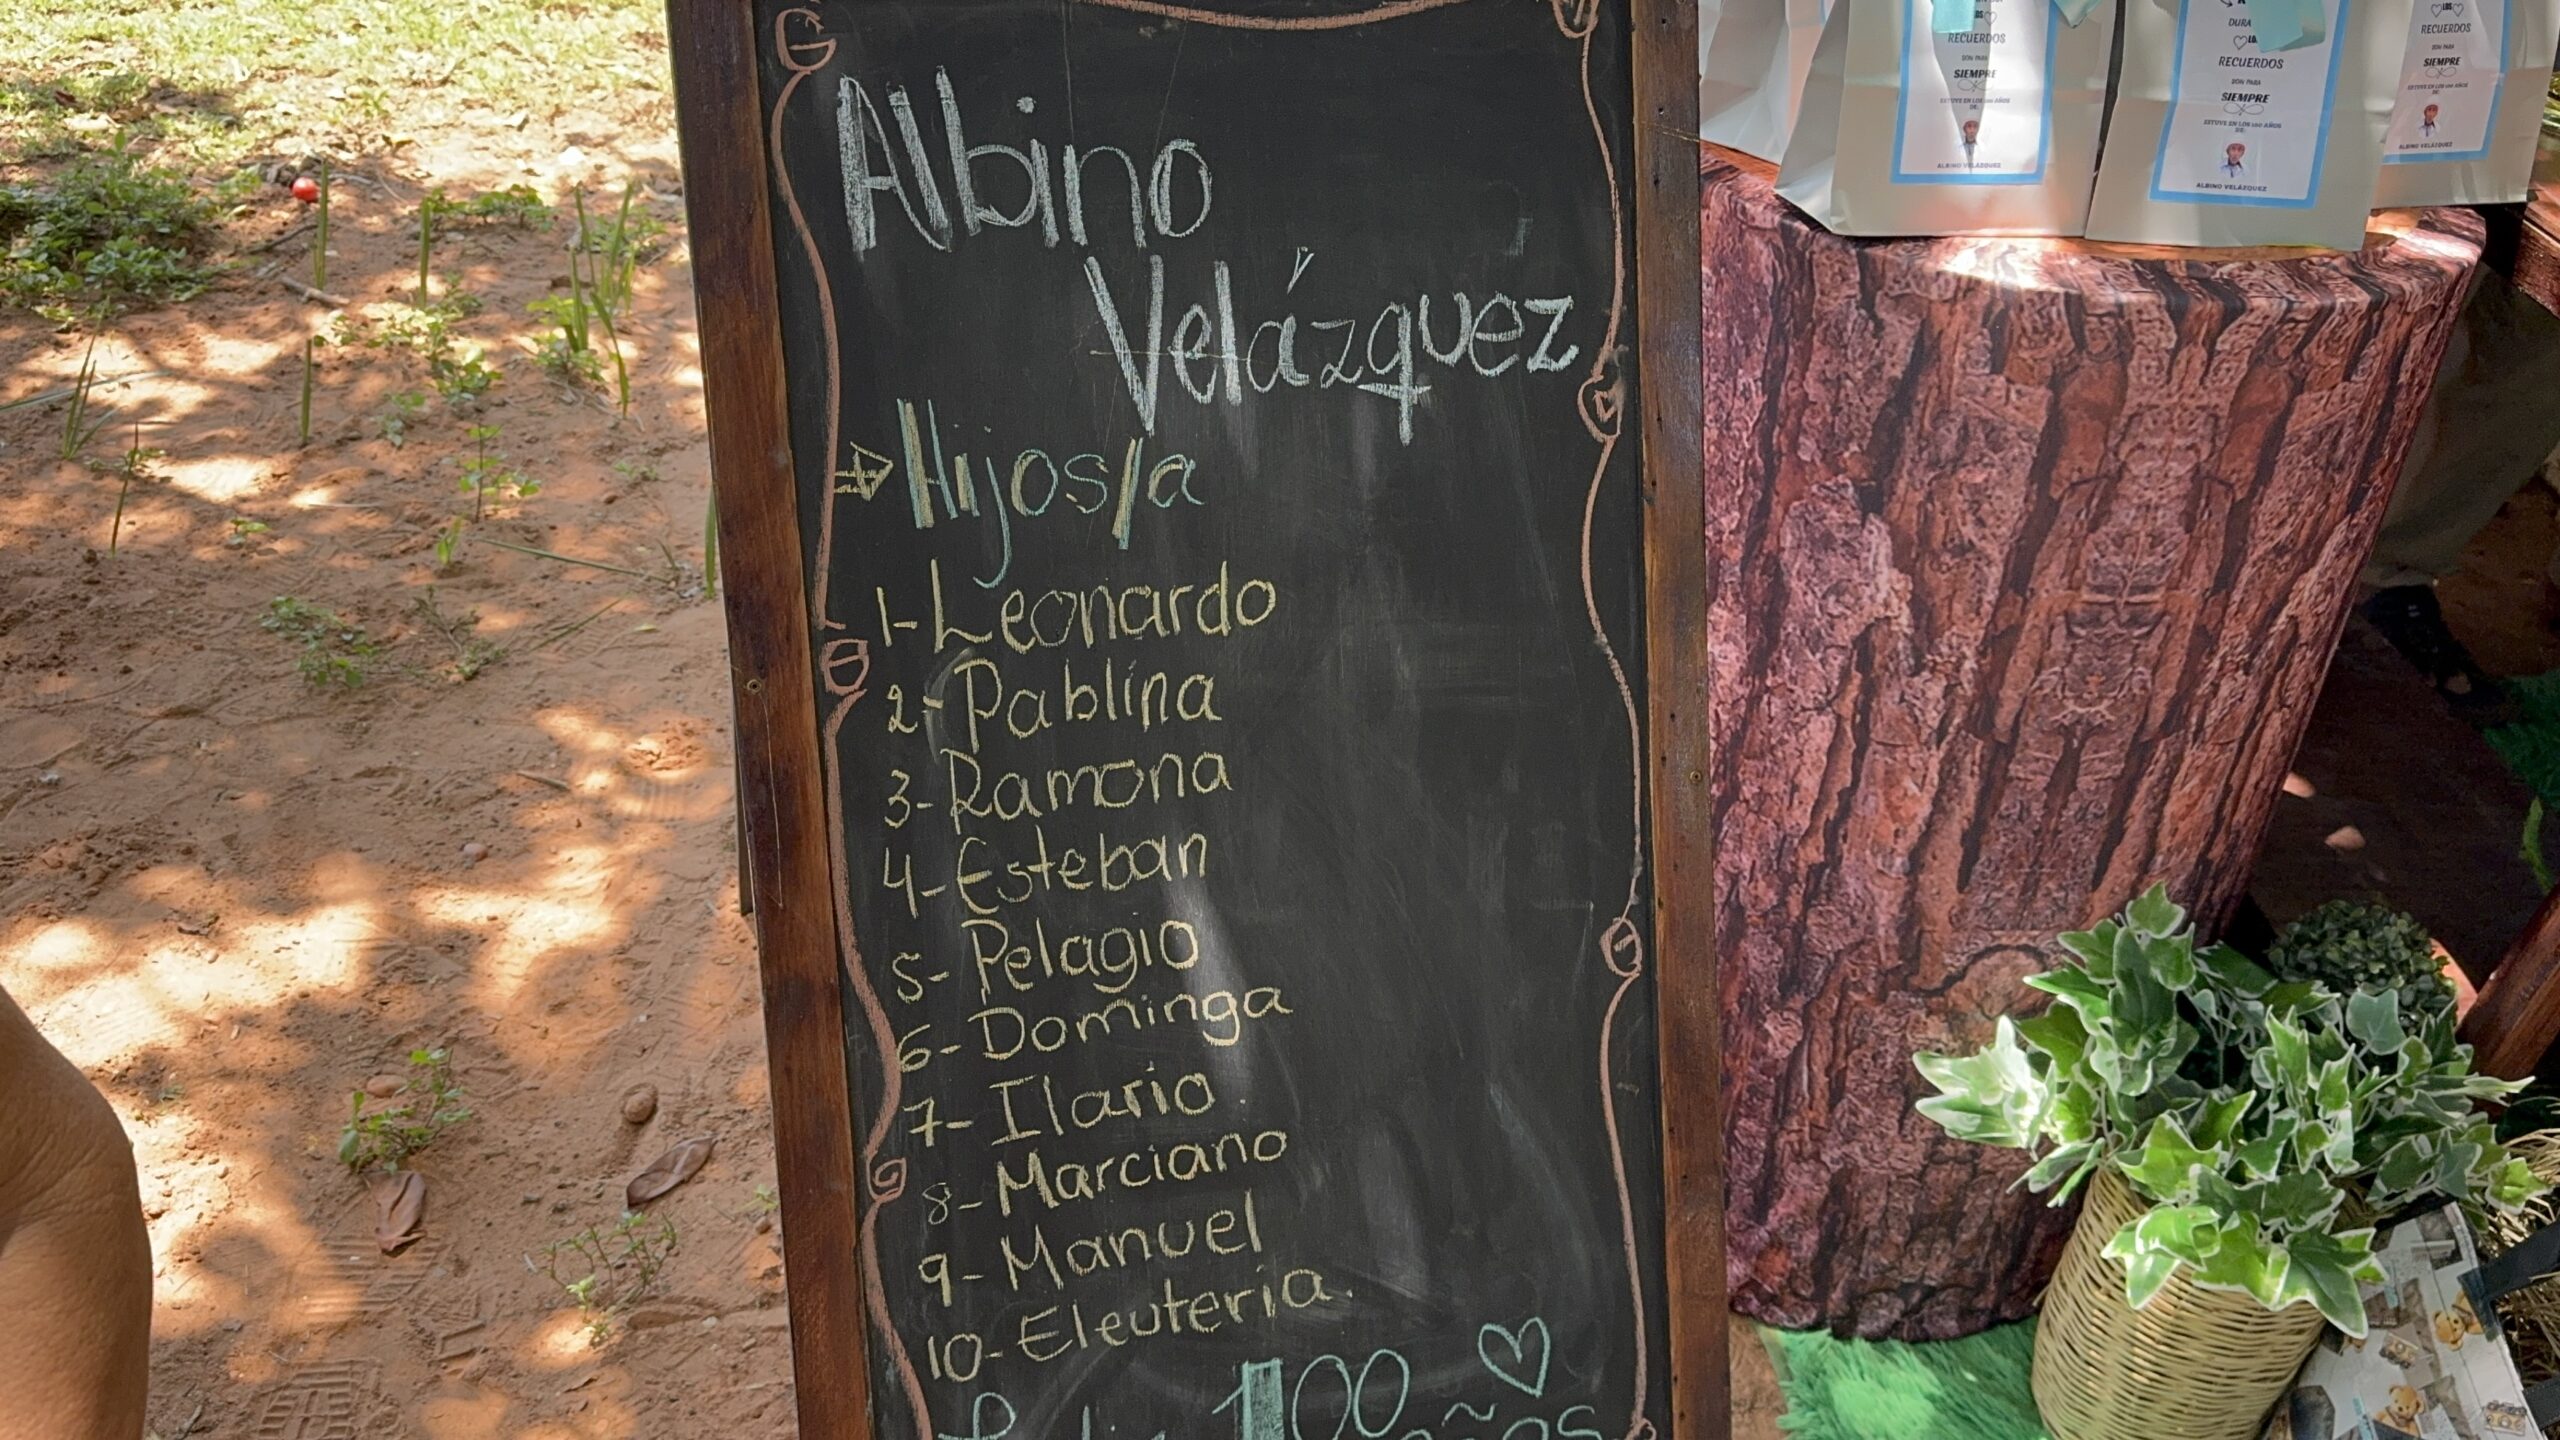 Albino
Velázquéz
⇒ Hijos/a
1-Leonardo
2-Pablina
3-Ramona
4-Esteban
5-Pelagio
6-Dominga
7-Ilario.
8-Marciano
9-Manuel
10-Eleuteria.
100
♡ LOS
RECUERDOS
SON PARA
SIEMPRE
ESTUVE EN LOS 100 AÑOS
DE:
ALBINO VELÁZQUEZ
DURA
♡ LOS
RECUERDOS
SON PARA
SIEMPRE
ESTUVE EN LOS 100 AÑOS
DE:
ALBINO VELÁZQUEZ
♡ LOS ♡
RECUERDOS
SON PARA
SIEMPRE
ESTUVE EN LOS 100 AÑOS
DE:
ALBINO VELÁZQUEZ